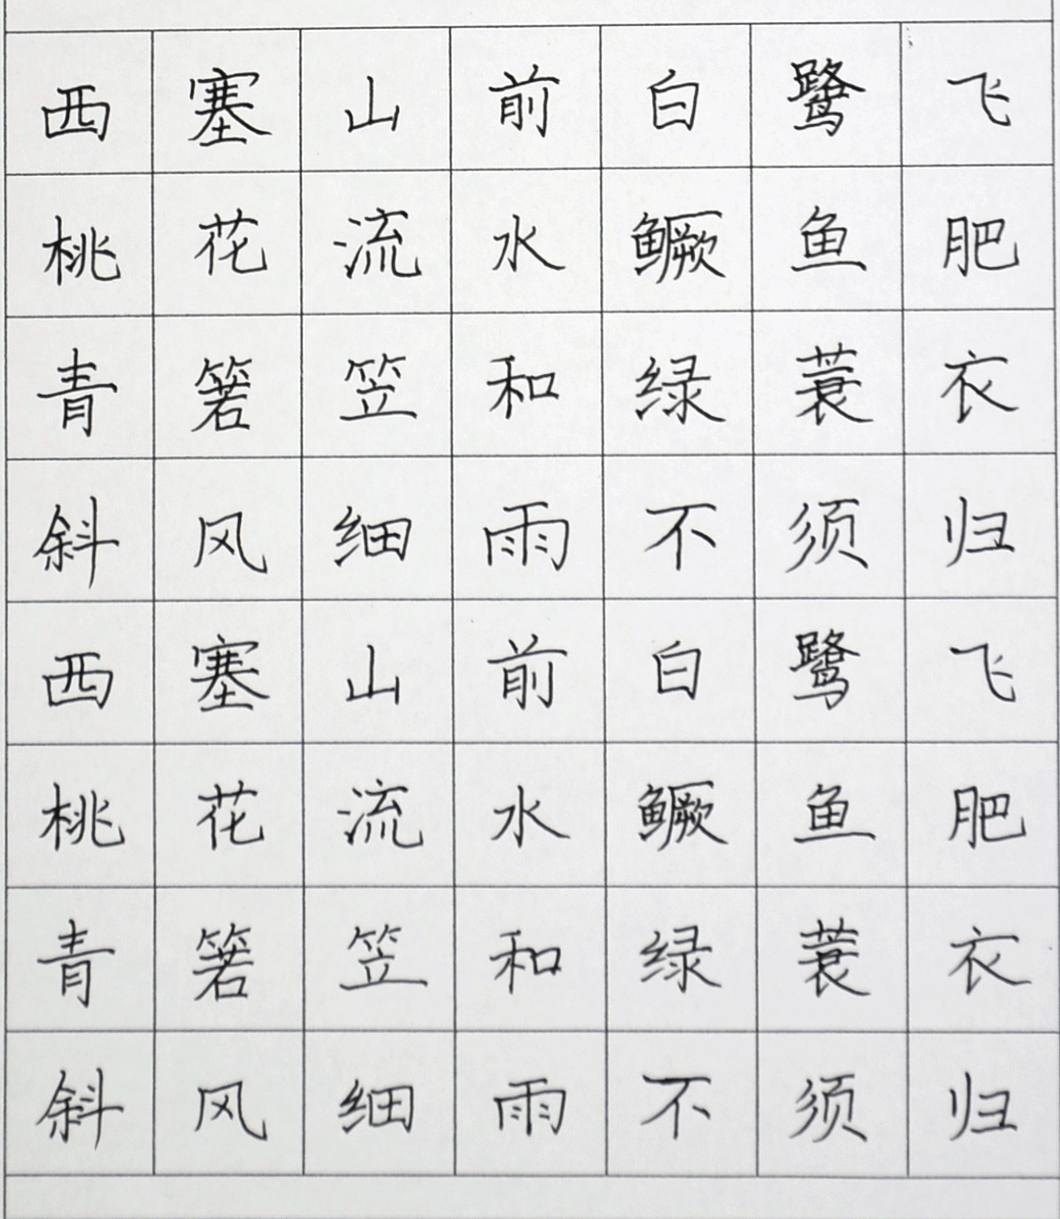 西塞山前白鹭飞
桃花流水鳜鱼肥
青箬笠和绿蓑衣
斜风细雨不须归
西塞山前白鹭飞
桃花流水鳜鱼肥
青箬笠和绿蓑衣
斜风细雨不须归